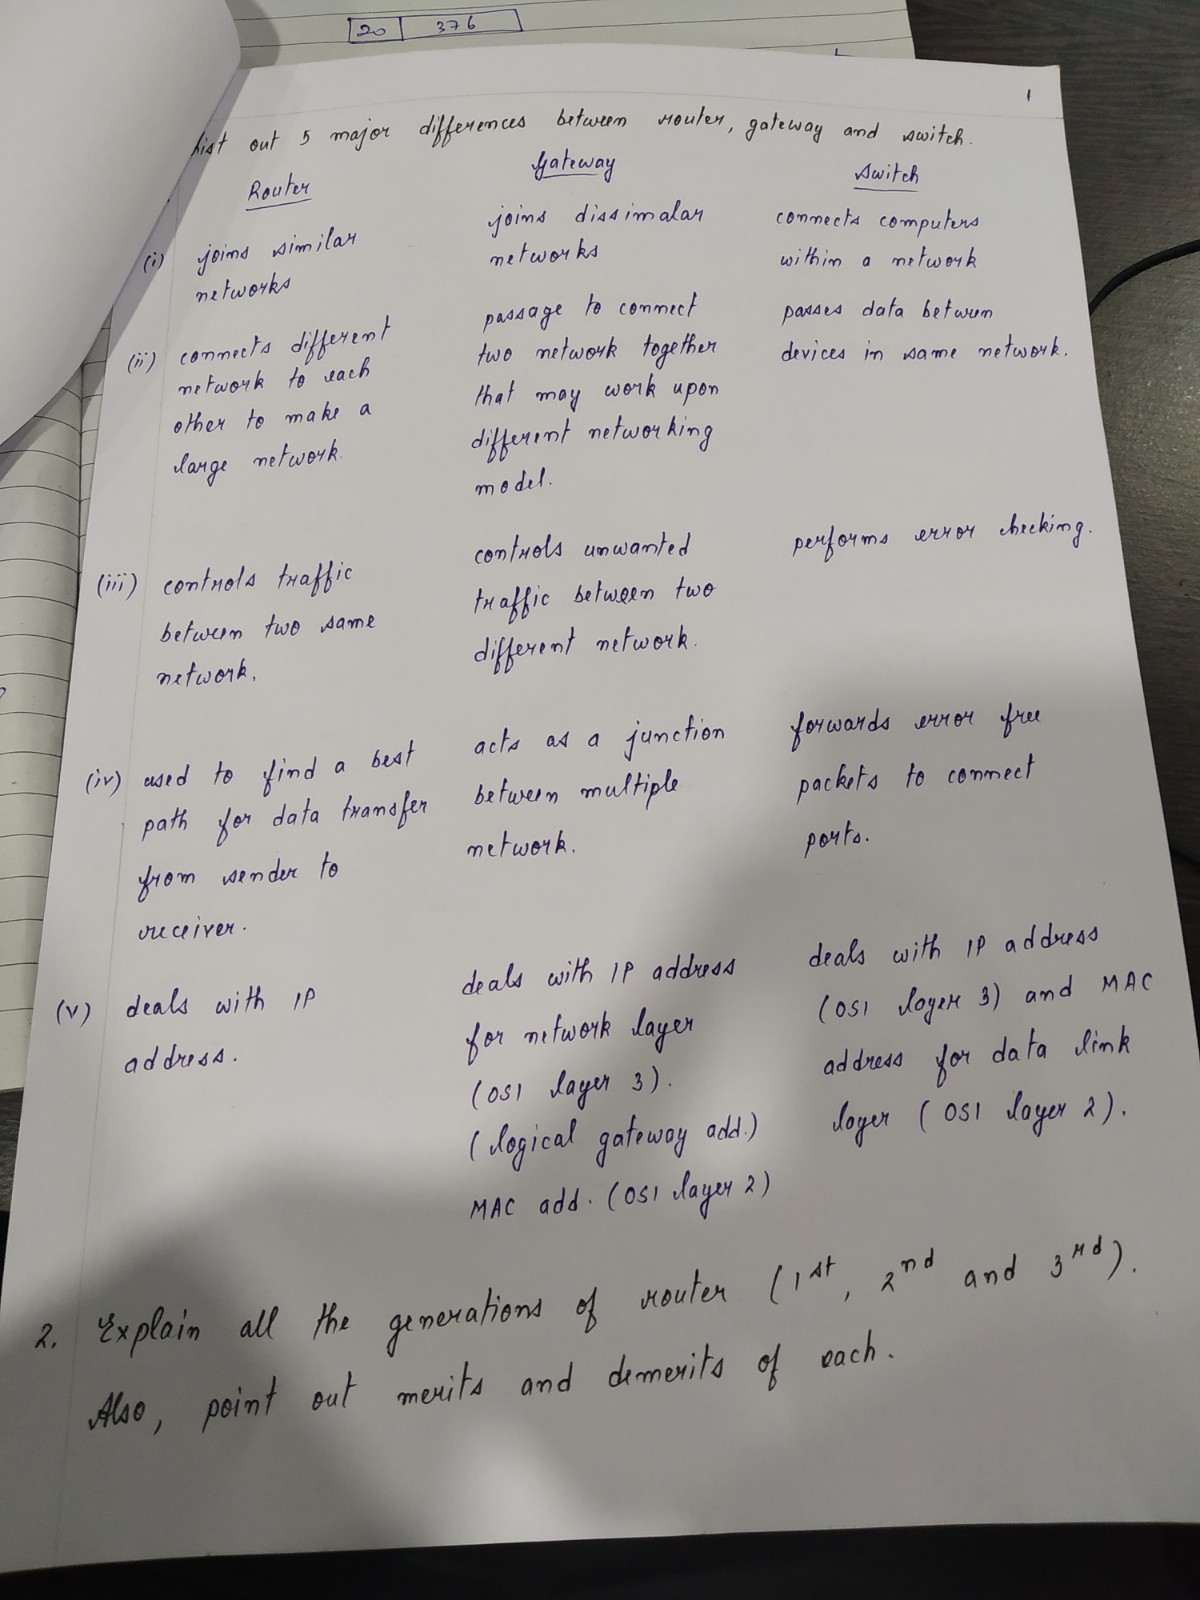 20 376
1
List out 5 major differences between router, gateway and switch.
Router
Gateway
Switch
(i) joins similar
networks
joins dissimalar
networks
connects computers
within a network
(ii) connects different
network to each
other to make a
large network.
passage to connect
two network together
that may work upon
different networking
model.
passes data between
devices in same network.
(iii) controls traffic
between two same
network.
controls unwanted
traffic between two
different network.
performs error checking.
(iv) used to find a best
path for data transfer
from sender to
receiver.
acts as a junction
between multiple
network.
forwards error free
packets to connect
ports.
(v) deals with IP
address.
deals with IP address
for network layer
(OSI layer 3).
(logical gateway add.)
MAC add. (OSI layer 2)
deals with IP address
(OSI layer 3) and MAC
address for data link
layer (OSI layer 2).
2. Explain all the generations of router (1st, 2nd and 3rd).
Also, point out merits and demerits of each.